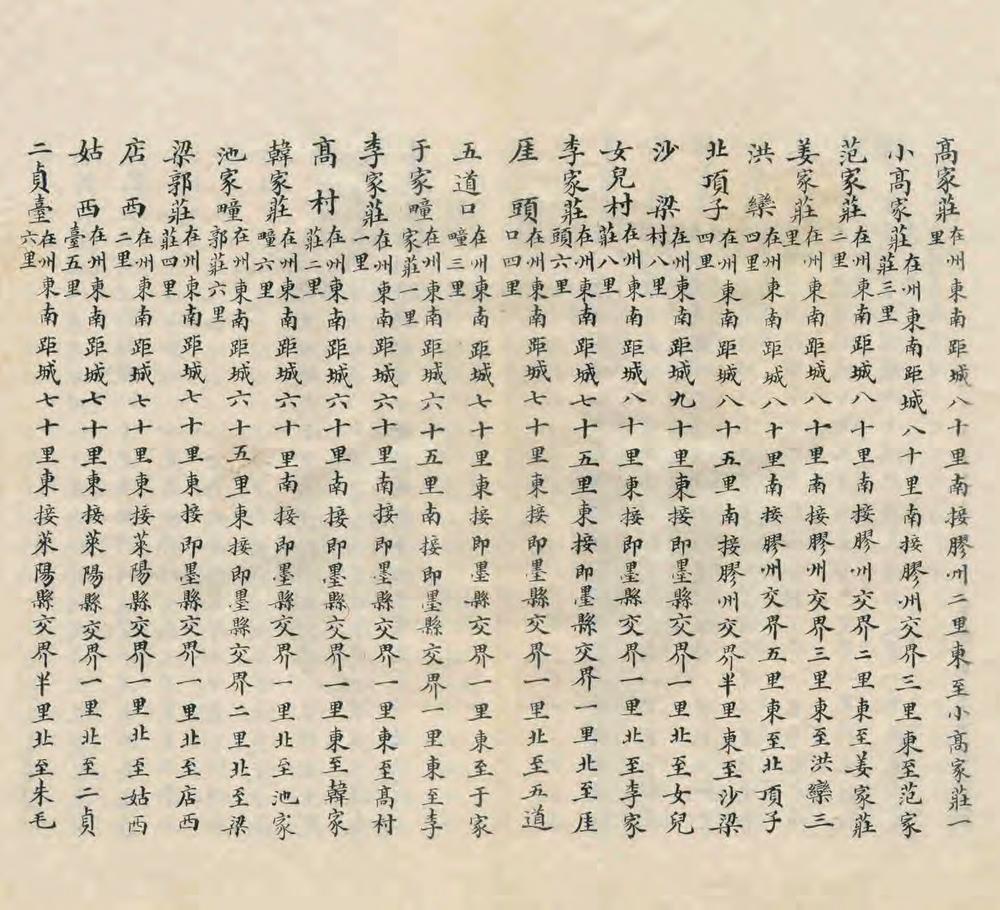 高家莊在州東南距城八十里南接膠州二里東至小高家莊一
里
小高家莊在州東南距城八十里南接膠州交界三里東至范家
莊三里
范家莊在州東南距城八十里南接膠州交界二里東至姜家莊
二里
姜家莊在州東南距城八十里南接膠州交界三里東至洪欒三
里
洪欒在州東南距城八十里南接膠州交界五里東至北頂子
四里
北頂子在州東南距城八十五里南接膠州交界半里東至沙梁
四里
沙梁在州東南距城九十里東接即墨縣交界一里北至女兒
村八里
女兒村在州東南距城八十里東接即墨縣交界一里北至李家
莊八里
李家莊在州東南距城七十五里東接即墨縣交界一里北至厓
頭六里
厓頭在州東南距城七十里東接即墨縣交界一里北至五道
口四里
五道口在州東南距城七十里東接即墨縣交界一里東至于家
畽三里
于家畽在州東南距城六十五里南接即墨縣交界一里東至李
家莊一里
李家莊在州東南距城六十里南接即墨縣交界一里東至高村
一里
高村在州東南距城六十里南接即墨縣交界一里東至韓家
莊二里
韓家莊在州東南距城六十里南接即墨縣交界一里北至池家
畽六里
池家畽在州東南距城六十五里東接即墨縣交界二里北至梁
郭莊六里
梁郭莊在州東南距城七十里東接即墨縣交界一里北至店西
莊四里
店西在州東南距城七十里東接萊陽縣交界一里北至姑西
二里
姑西在州東南距城七十里東接萊陽縣交界一里北至二貞
臺五里
二貞臺在州東南距城七十里東接萊陽縣交界半里北至朱毛
六里